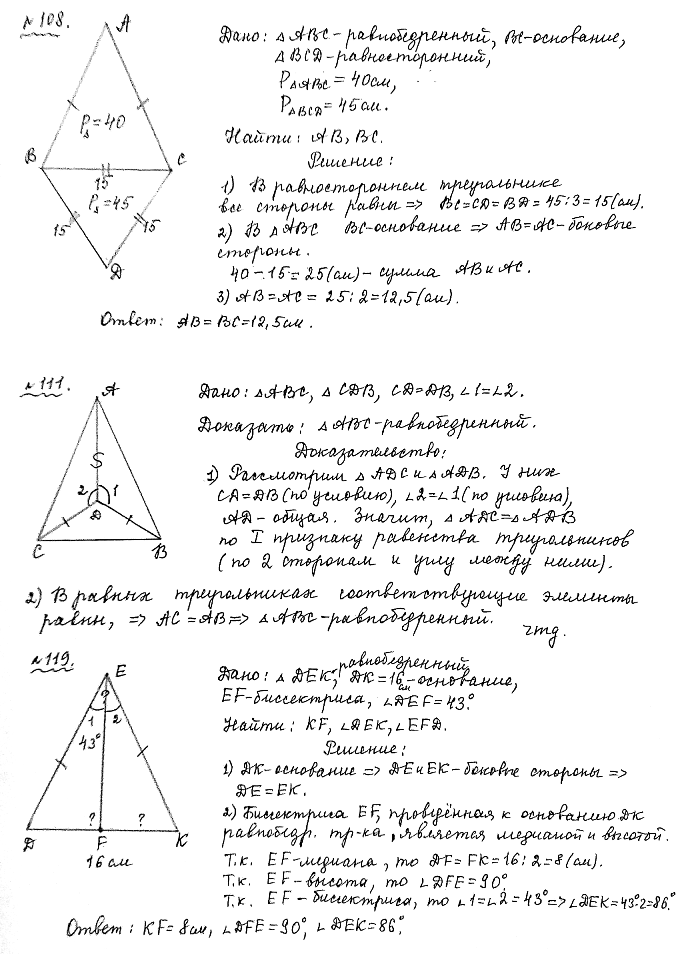 №108.
A
Дано: △ABC - равнобедренный, BC-основание,
△BCD-равносторонний,
P△ABC = 40см,
P△BCD = 45см.
P△=40
Найти: AB, BC.
B
C
Решение:
15
1) В равностороннем треугольнике
P△=45
все стороны равны => BC=CD=BD=45:3=15(см).
15
15
2) В △ABC BC-основание => AB=AC-боковые
стороны.
D
40-15=25(см)- сумма AB и AC.
3) AB=AC= 25:2=12,5(см).
Ответ: AB=BC=12,5см.
№111.
A
Дано: △ABC, △CDB, CD=DB, ∠1=∠2.
Доказать: △ABC-равнобедренный.
Доказательство:
S
1) Рассмотрим △ADC и △ADB. У них
2
1
D
CD=DB (по условию), ∠2=∠1 (по условию),
AD- общая. Значит, △ADC=△ADB
C
B
по I признаку равенства треугольников
(по 2 сторонам и углу между ними).
2) В равных треугольниках соответствующие элементы
равны, => AC=AB => △ABC-равнобедренный.
чтд.
№119.
E
равнобедренный
Дано: △DEK; DK=16 см-основание,
EF-биссектриса, ∠DEF=43°.
?
1
2
43°
Найти: KF, ∠DEK, ∠EFD.
Решение:
1) DK-основание => DE и EK-боковые стороны =>
DE=EK.
2) Биссектриса EF, проведённая к основанию DK
?
?
равнобедр. тр-ка, является медианой и высотой.
D
F
K
16см
Т.к. EF-медиана, то DF=FK=16:2=8(см).
Т.к. EF-высота, то ∠DFE=90°
Т.к. EF-биссектриса, то ∠1=∠2=43°=>∠DEK=43°·2=86°.
Ответ: KF=8см, ∠DFE=90°, ∠DEK=86°.